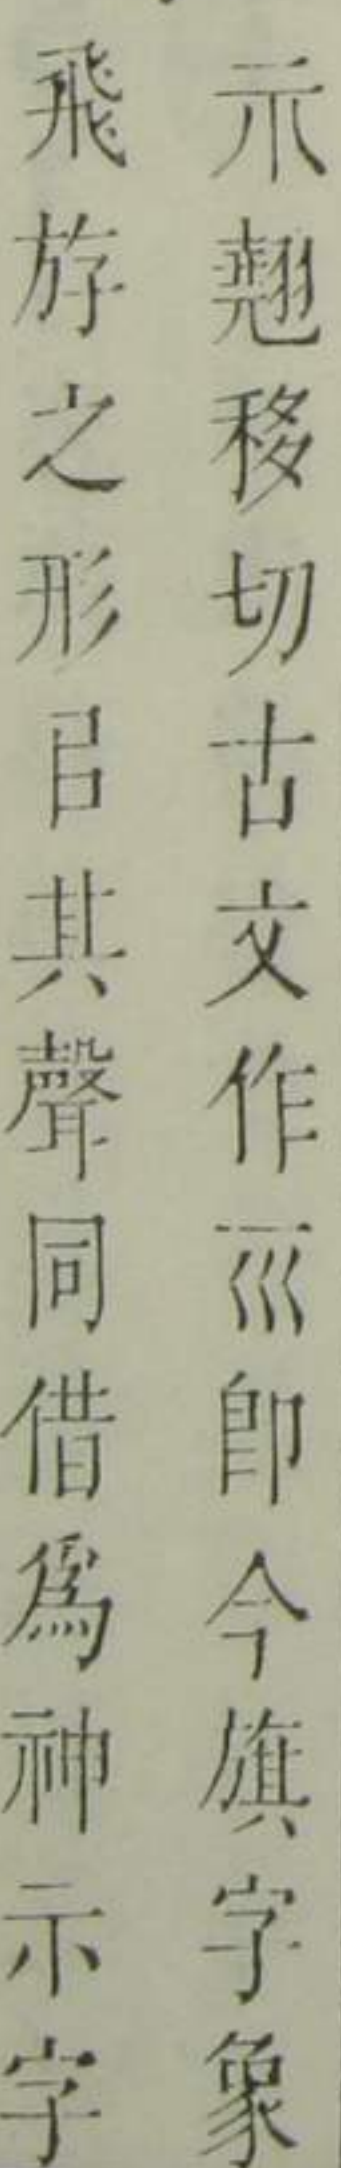 示翹移切古文作𡿧卽今旗字象
飛斿之形㠯其聲同借爲神示字